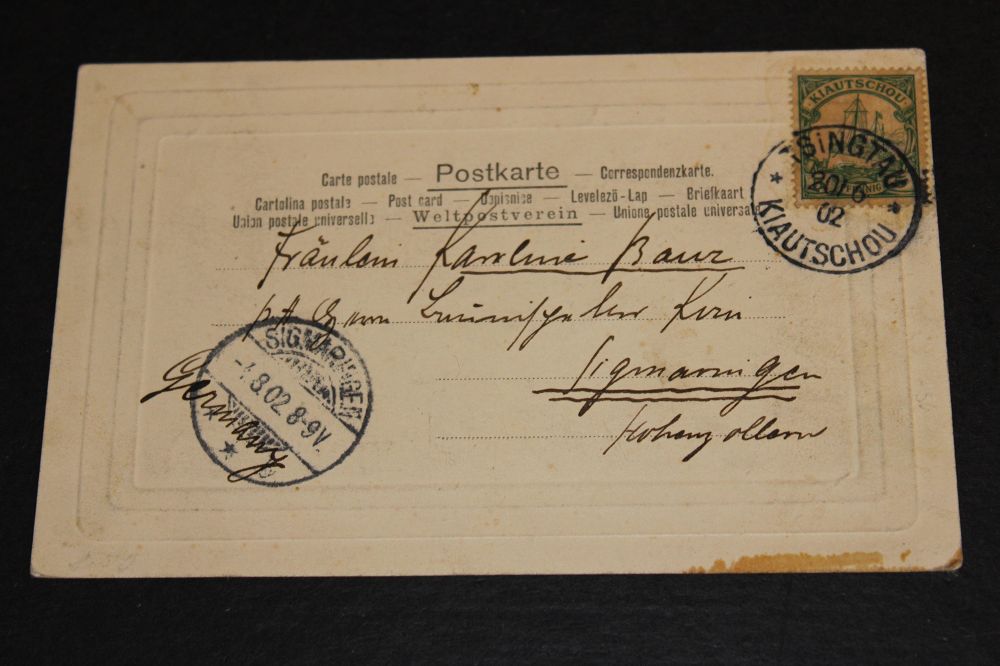 KIAUTSCHOU
PFENNIG
TSINGTAU
20/6
02
KIAUTSCHOU
Postkarte
Carte postale — Correspondenzkarte.
Cartolina postale — Post card — Dopisnice — Levelező-Lap — Briefkaart
Union postale universelle — Weltpostverein — Unione postale universale
Fräulein Karoline Baur
Sigmaringen
Hohenzollern
Germany
SIGMARINGEN
8.02.8-9V.